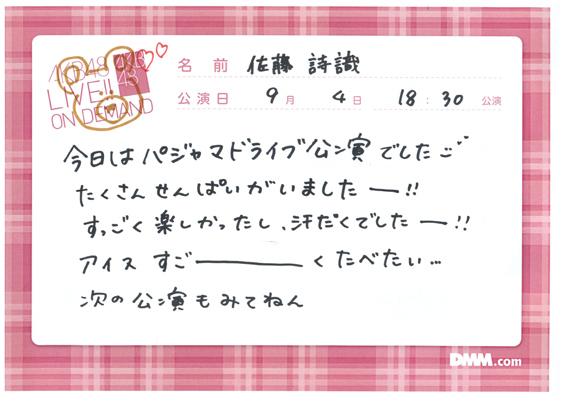 AKB48
LIVE!!
ON DEMAND
AKB
48
名前 佐藤 詩識
公演日 9月 4日 18:30 公演
今日はパジャマドライブ公演でした
たくさんせんぱいがいましたー!!
すっごく楽しかったし、汗だくでしたー!!
アイス すごーーーくたべたい…
次の公演もみてねん
DMM.com